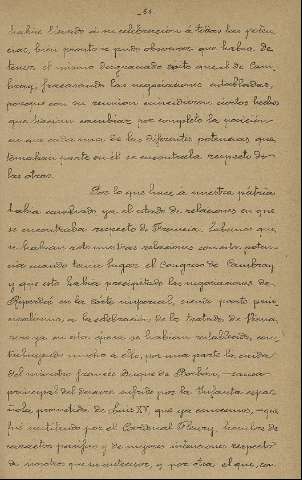 51
había llevado á su celebracion á todas las poten-
cias, bien pronto se pudo observar que había de
tener el mismo desgraciado éxito que el de Cam-
bray, fracasando las negociaciones entabladas,
porque con su reunion coincidieron ciertos hechos
que hacían cambiar por completo la posición
en que cada una de las diferentes potencias que
tomaban parte en él se encontraba respecto de
las otras.
Por lo que hace á nuestra pátria
había cambiado ya el estado de relaciones en que
se encontraba respecto de Francia. Sabemos que
se habian roto nuestras relaciones con esta poten-
cia cuando tuvo lugar el Congreso de Cambray
y que esto había precipitado las negociaciones de
Riperdá en la corte imperial,
á la celebracion de los tratados de Viena,
pero ya en esta época se habian restablecido, con-
tribuyendo mucho á ello, por una parte la caida
del ministro francés Duque de Borbón, causa
principal del desaire sufrido por la Infanta espa-
ñola, prometida de Luis XV, que ya conocemos, que
fué sustituido por el Cardenal Fleury, hombre de
carácter pacífico y de mejores intenciones respecto
de nosotros que su antecesor, y por otra el que, con-